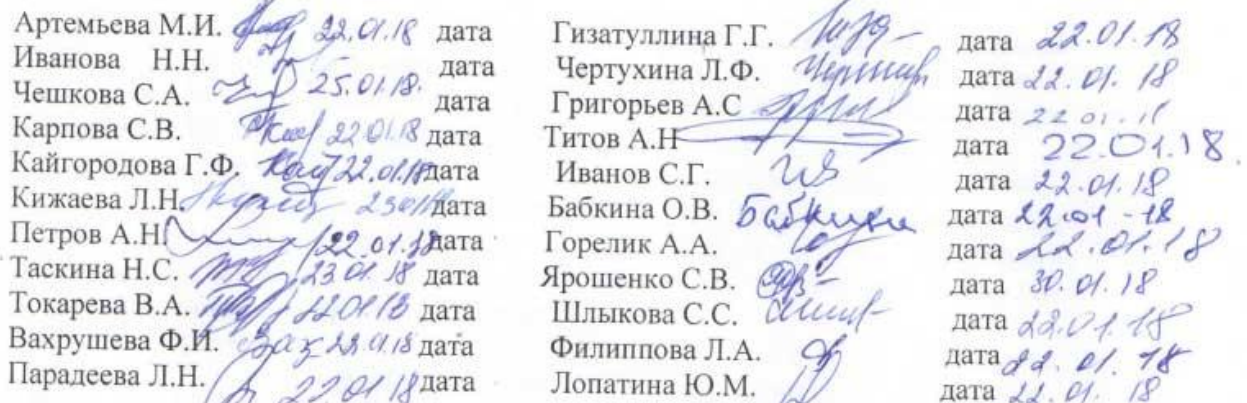 Артемьева М.И. 22.01.18 дата
Иванова Н.Н. дата
Чешкова С.А. 25.01.18. дата
Карпова С.В. 22.01.18 дата
Кайгородова Г.Ф. 22.01.18 дата
Кижаева Л.Н. дата
Петров А.Н. 22.01.18 дата
Таскина Н.С. 23.01.18 дата
Токарева В.А. 22.01.18 дата
Вахрушева Ф.И. 22.01.18 дата
Парадеева Л.Н. 22.01.18 дата
Гизатуллина Г.Г. дата 22.01.18
Чертухина Л.Ф. дата 22.01.18
Григорьев А.С дата 22.01.
Титов А.Н дата 22.01.18.
Иванов С.Г. дата 22.01.18
Бабкина О.В. Бабкина дата 22.01-18
Горелик А.А. дата 22.01.18
Ярошенко С.В. дата 30.01.18
Шлыкова С.С. дата 22.01.18
Филиппова Л.А. дата 22.01.18
Лопатина Ю.М. дата 22.01.18